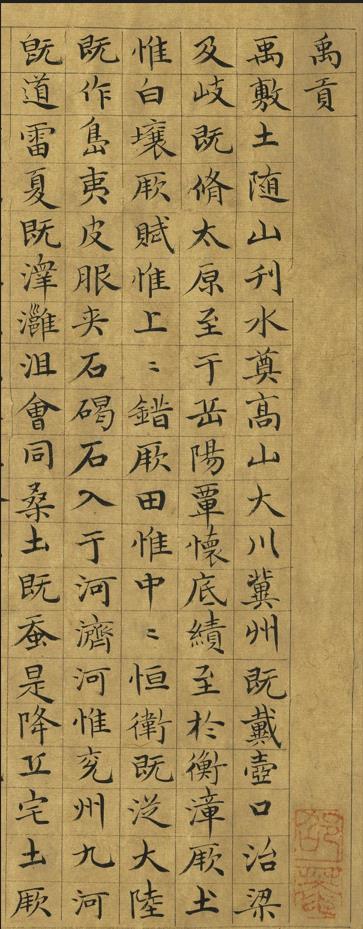 禹貢
禹敷土随山刋水奠髙山大川冀州既戴壺口治梁
及岐既脩太原至于岳陽覃懷底績至於衡漳厥土
惟白壤厥賦惟上〻錯厥田惟中〻恒衛既従大陸
既作島夷皮服夾石碣石入于河濟河惟兖州九河
既道雷夏既澤灉沮會同桑土既蚕是降丘宅土厥